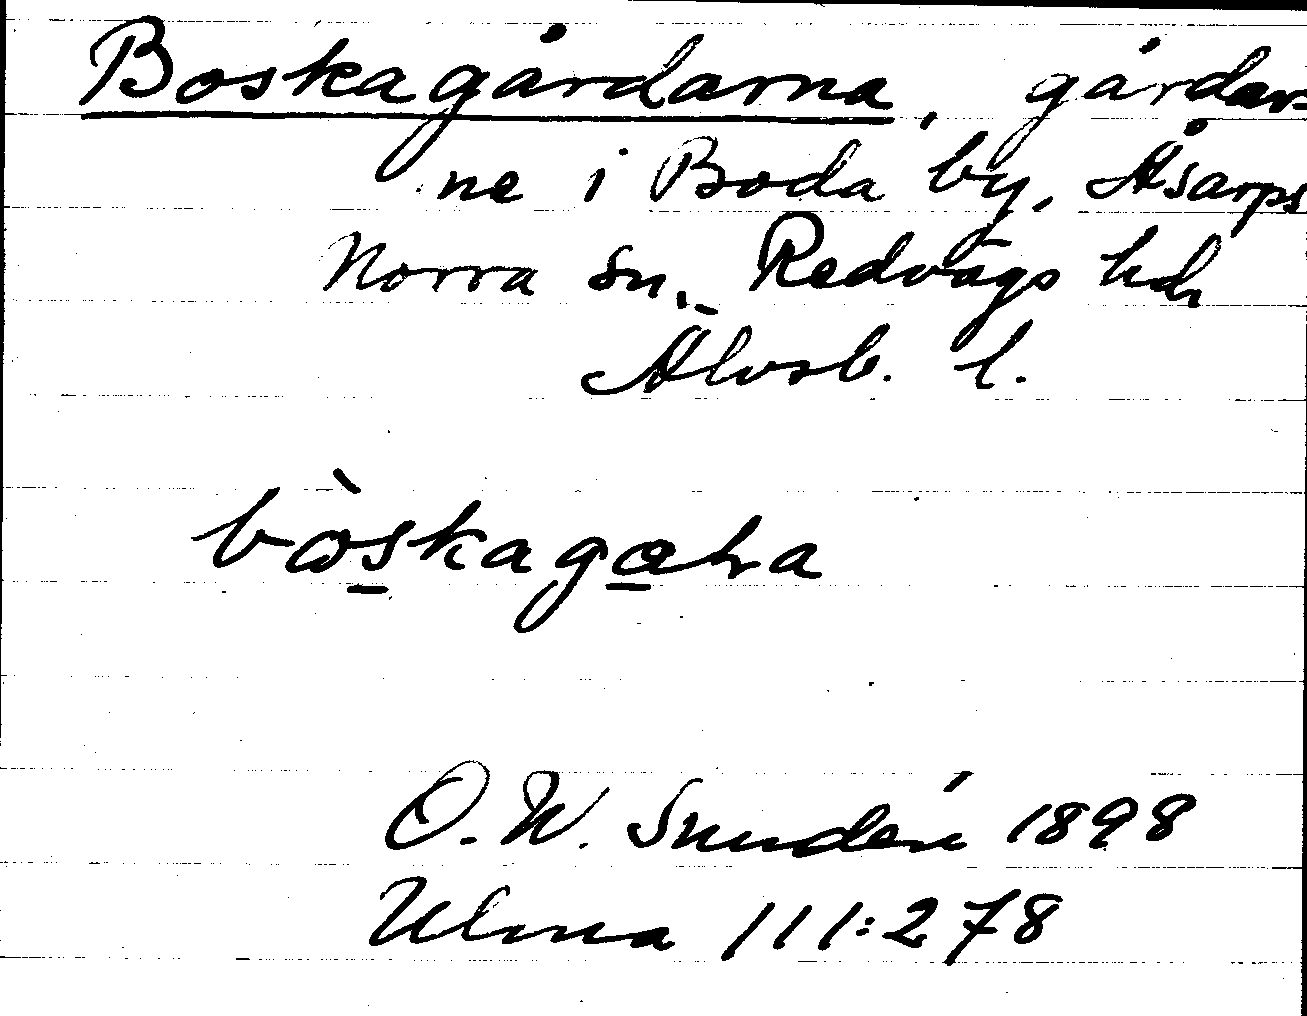 Boskagårdarna, gårdar-
ne i Boda by, Åsarps
Norra sn, Redvägs hd,
Älvsb. l.
bòskagaha
O. W. Snudén 1898
Ulma 111:278